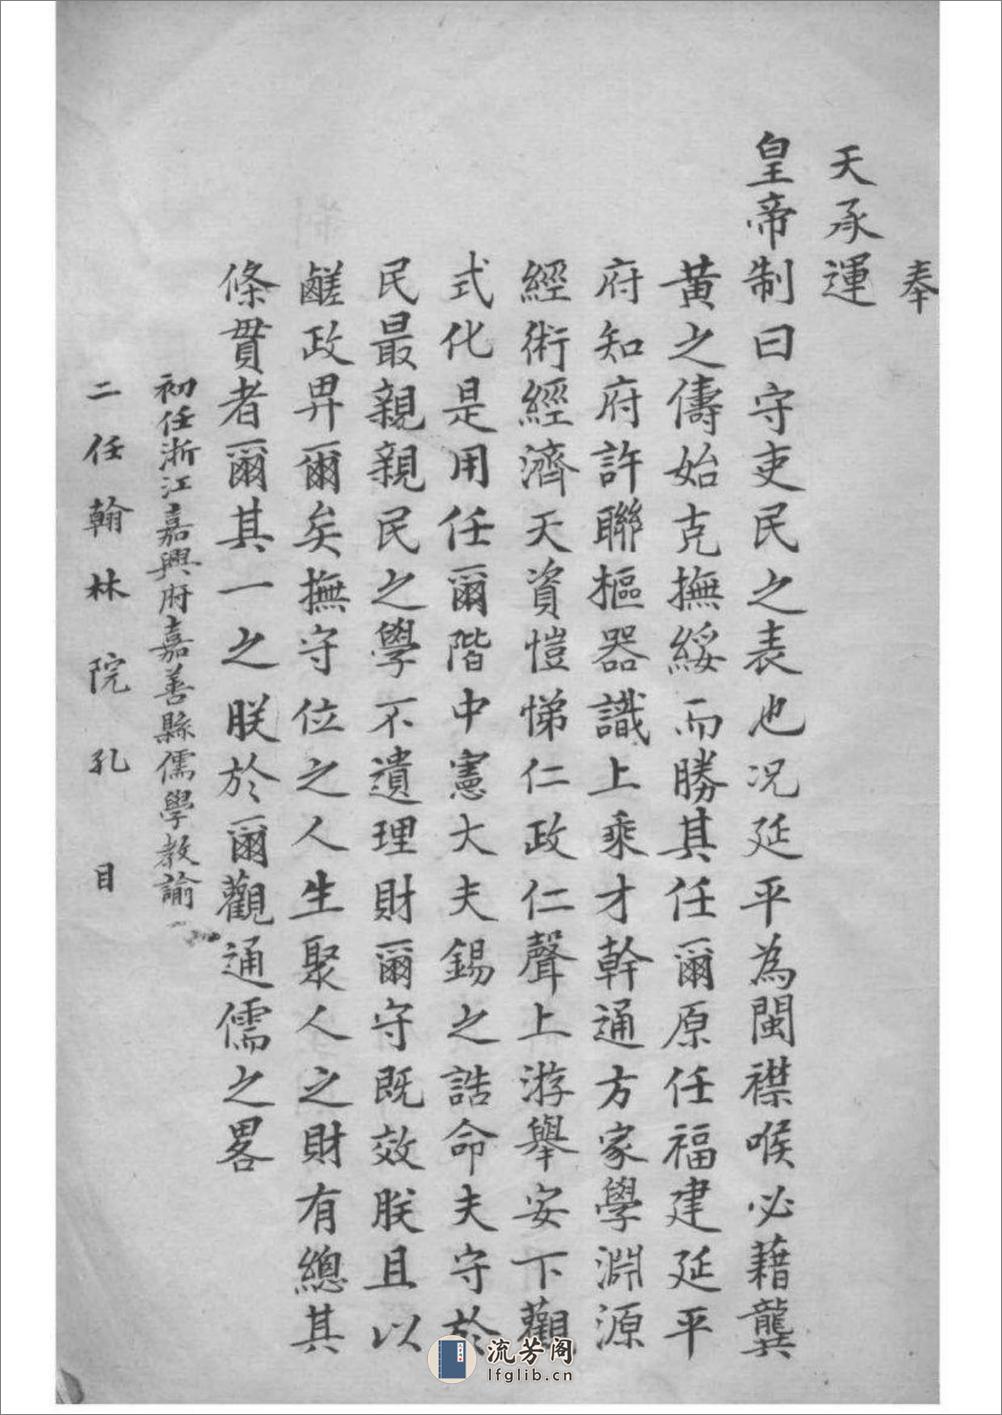 奉
天承運
皇帝制曰守吏民之表也况延平為閩襟喉必藉龔
黃之儔始克撫綏而勝其任爾原任福建延平
府知府許聯樞器識上乘才幹通方家學淵源
經術經濟天資愷悌仁政仁聲上游舉安下觀
式化是用任爾階中憲大夫錫之誥命夫守於
民最親親民之學不遺理財爾守既效朕且以
鹺政畀爾矣撫守位之人生聚人之財有總其
條貫者爾其一之朕於爾觀通儒之畧
初任浙江嘉興府嘉善縣儒學教諭
二任翰林院孔目
流芳阁
lfglib.cn